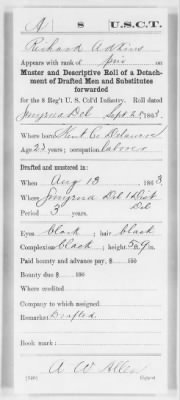 A | 8 | U.S.C.T.
Richard Adkins
Appears with rank of Priv on
Muster and Descriptive Roll of a Detach-
ment of Drafted Men and Substitutes
forwarded
for the 8 Reg't U. S. Col'd Infantry. Roll dated
Smyrna Del Sept 25, 1863.
Where born Kent Co Delaware
Age 23 years; occupation laborer
Drafted and mustered in:
When Aug 13, 1863.
Where Smyrna Del 1 Dist
Del
Period 3 years.
Eyes black; hair black
Complexion black; height 5 ft. 9 in.
Paid bounty and advance pay, $ 100
Bounty due $ 100
Where credited
Company to which assigned
Remarks: Drafted.
Book mark:
A W Allen
Copyist.